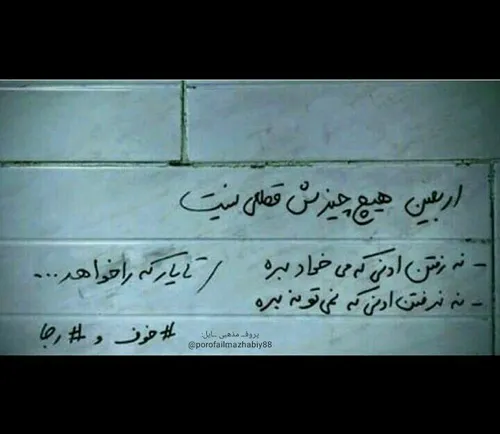 اربعین هیچ چیزش قطعی نیست
- نه رفتن اونی که می خواد بره
- نه نرفتن اونی که نمی تونه بره
/ تا یار که را خواهد...
#خوف و #رجا
پروفـ مذهبی ـایل:
@porofailmazhabiy88